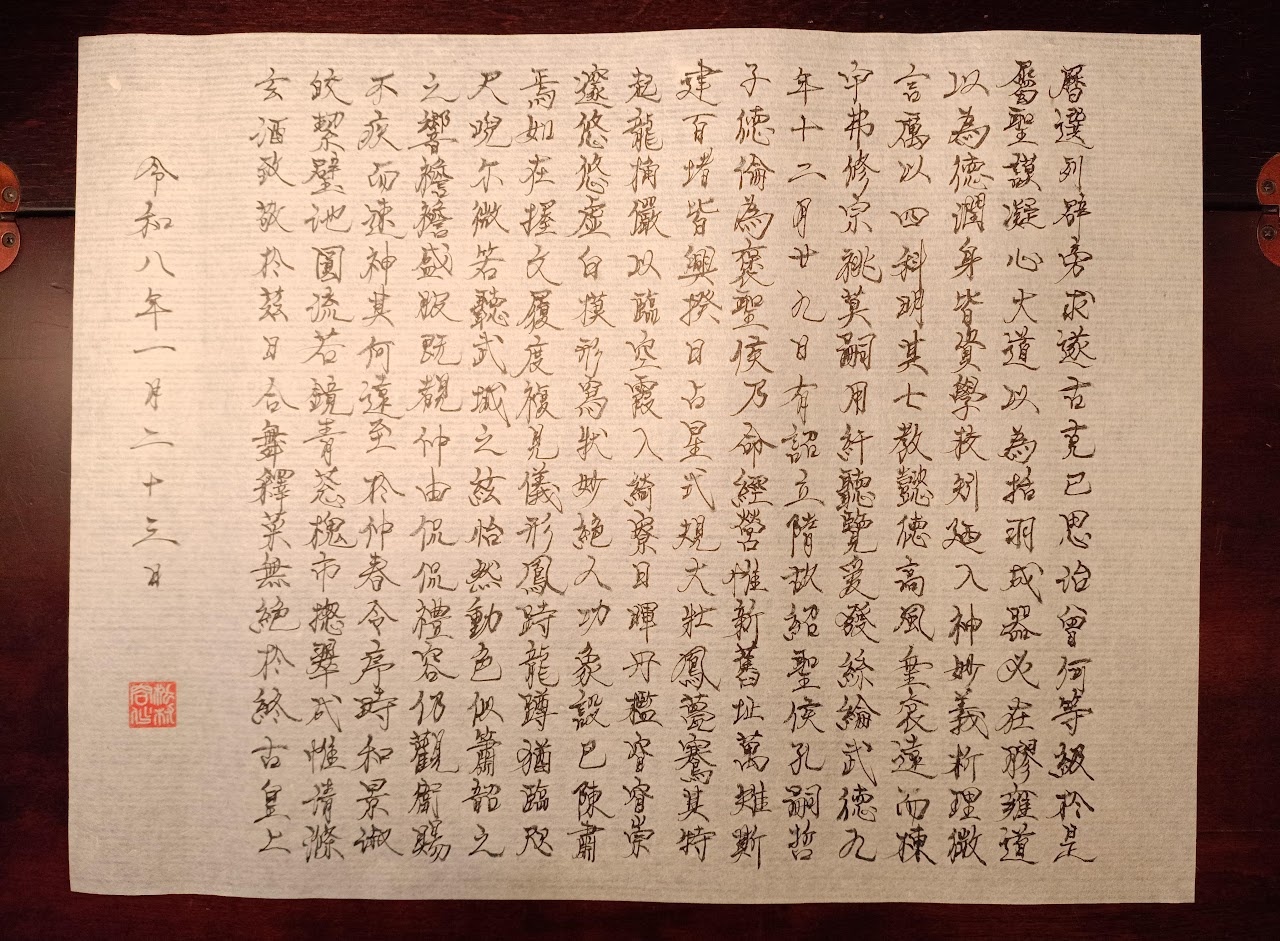 曆選列辟旁求遂古克己思治曾何等級於是
屬聖謨凝心大道以為括羽成器必在膠雍道
以為德潤身皆資學校矧廼入神妙義析理微
言厲以四科明其七教懿德高風垂裒遠而棟
宇弗修宗祧莫嗣用紆聽覽爰發絲綸武德九
年十二月廿九日有詔立隋故紹聖侯孔嗣哲
子德倫為褒聖侯乃命經營惟新舊址萬雉斯
建百堵皆興揆日占星式規大壯鳳甍騫其特
起龍桷儼以臨空霞入綺寮日暉丹檻窅窅崇
邃悠悠虛白模形寫狀妙絕人功象設已陳肅
焉如在握文履度複見儀形鳳跱龍蹲猶臨咫
尺睕尔微若聽武城之絃怡然動色似簫韶之
之響襜襜盛服既覩仲由侃侃禮容仍觀衛賜
不疾而速神其何遠至於仲春令序時和景淑
皎絜璧池圓流若鏡青葱槐市揔翠成帷清滌
玄酒致敬於茲日合舞釋菜無絕於終古皇上
令和八年一月二十三日